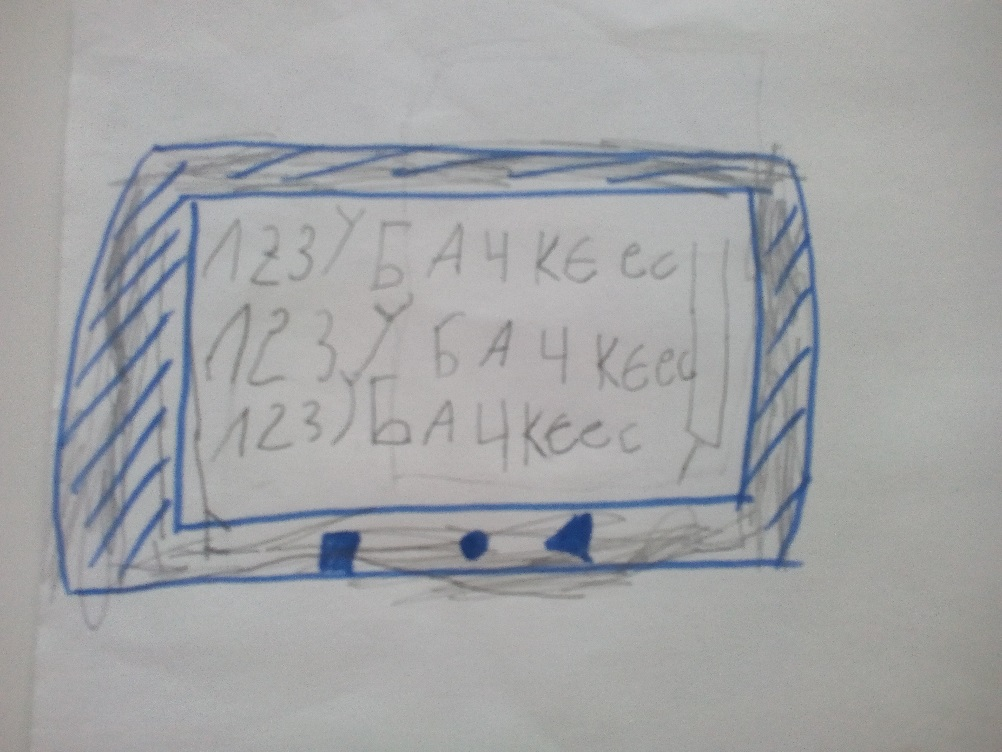 123УБАЧКЄес
123У БАЧКЄес
123УБАЧКеес